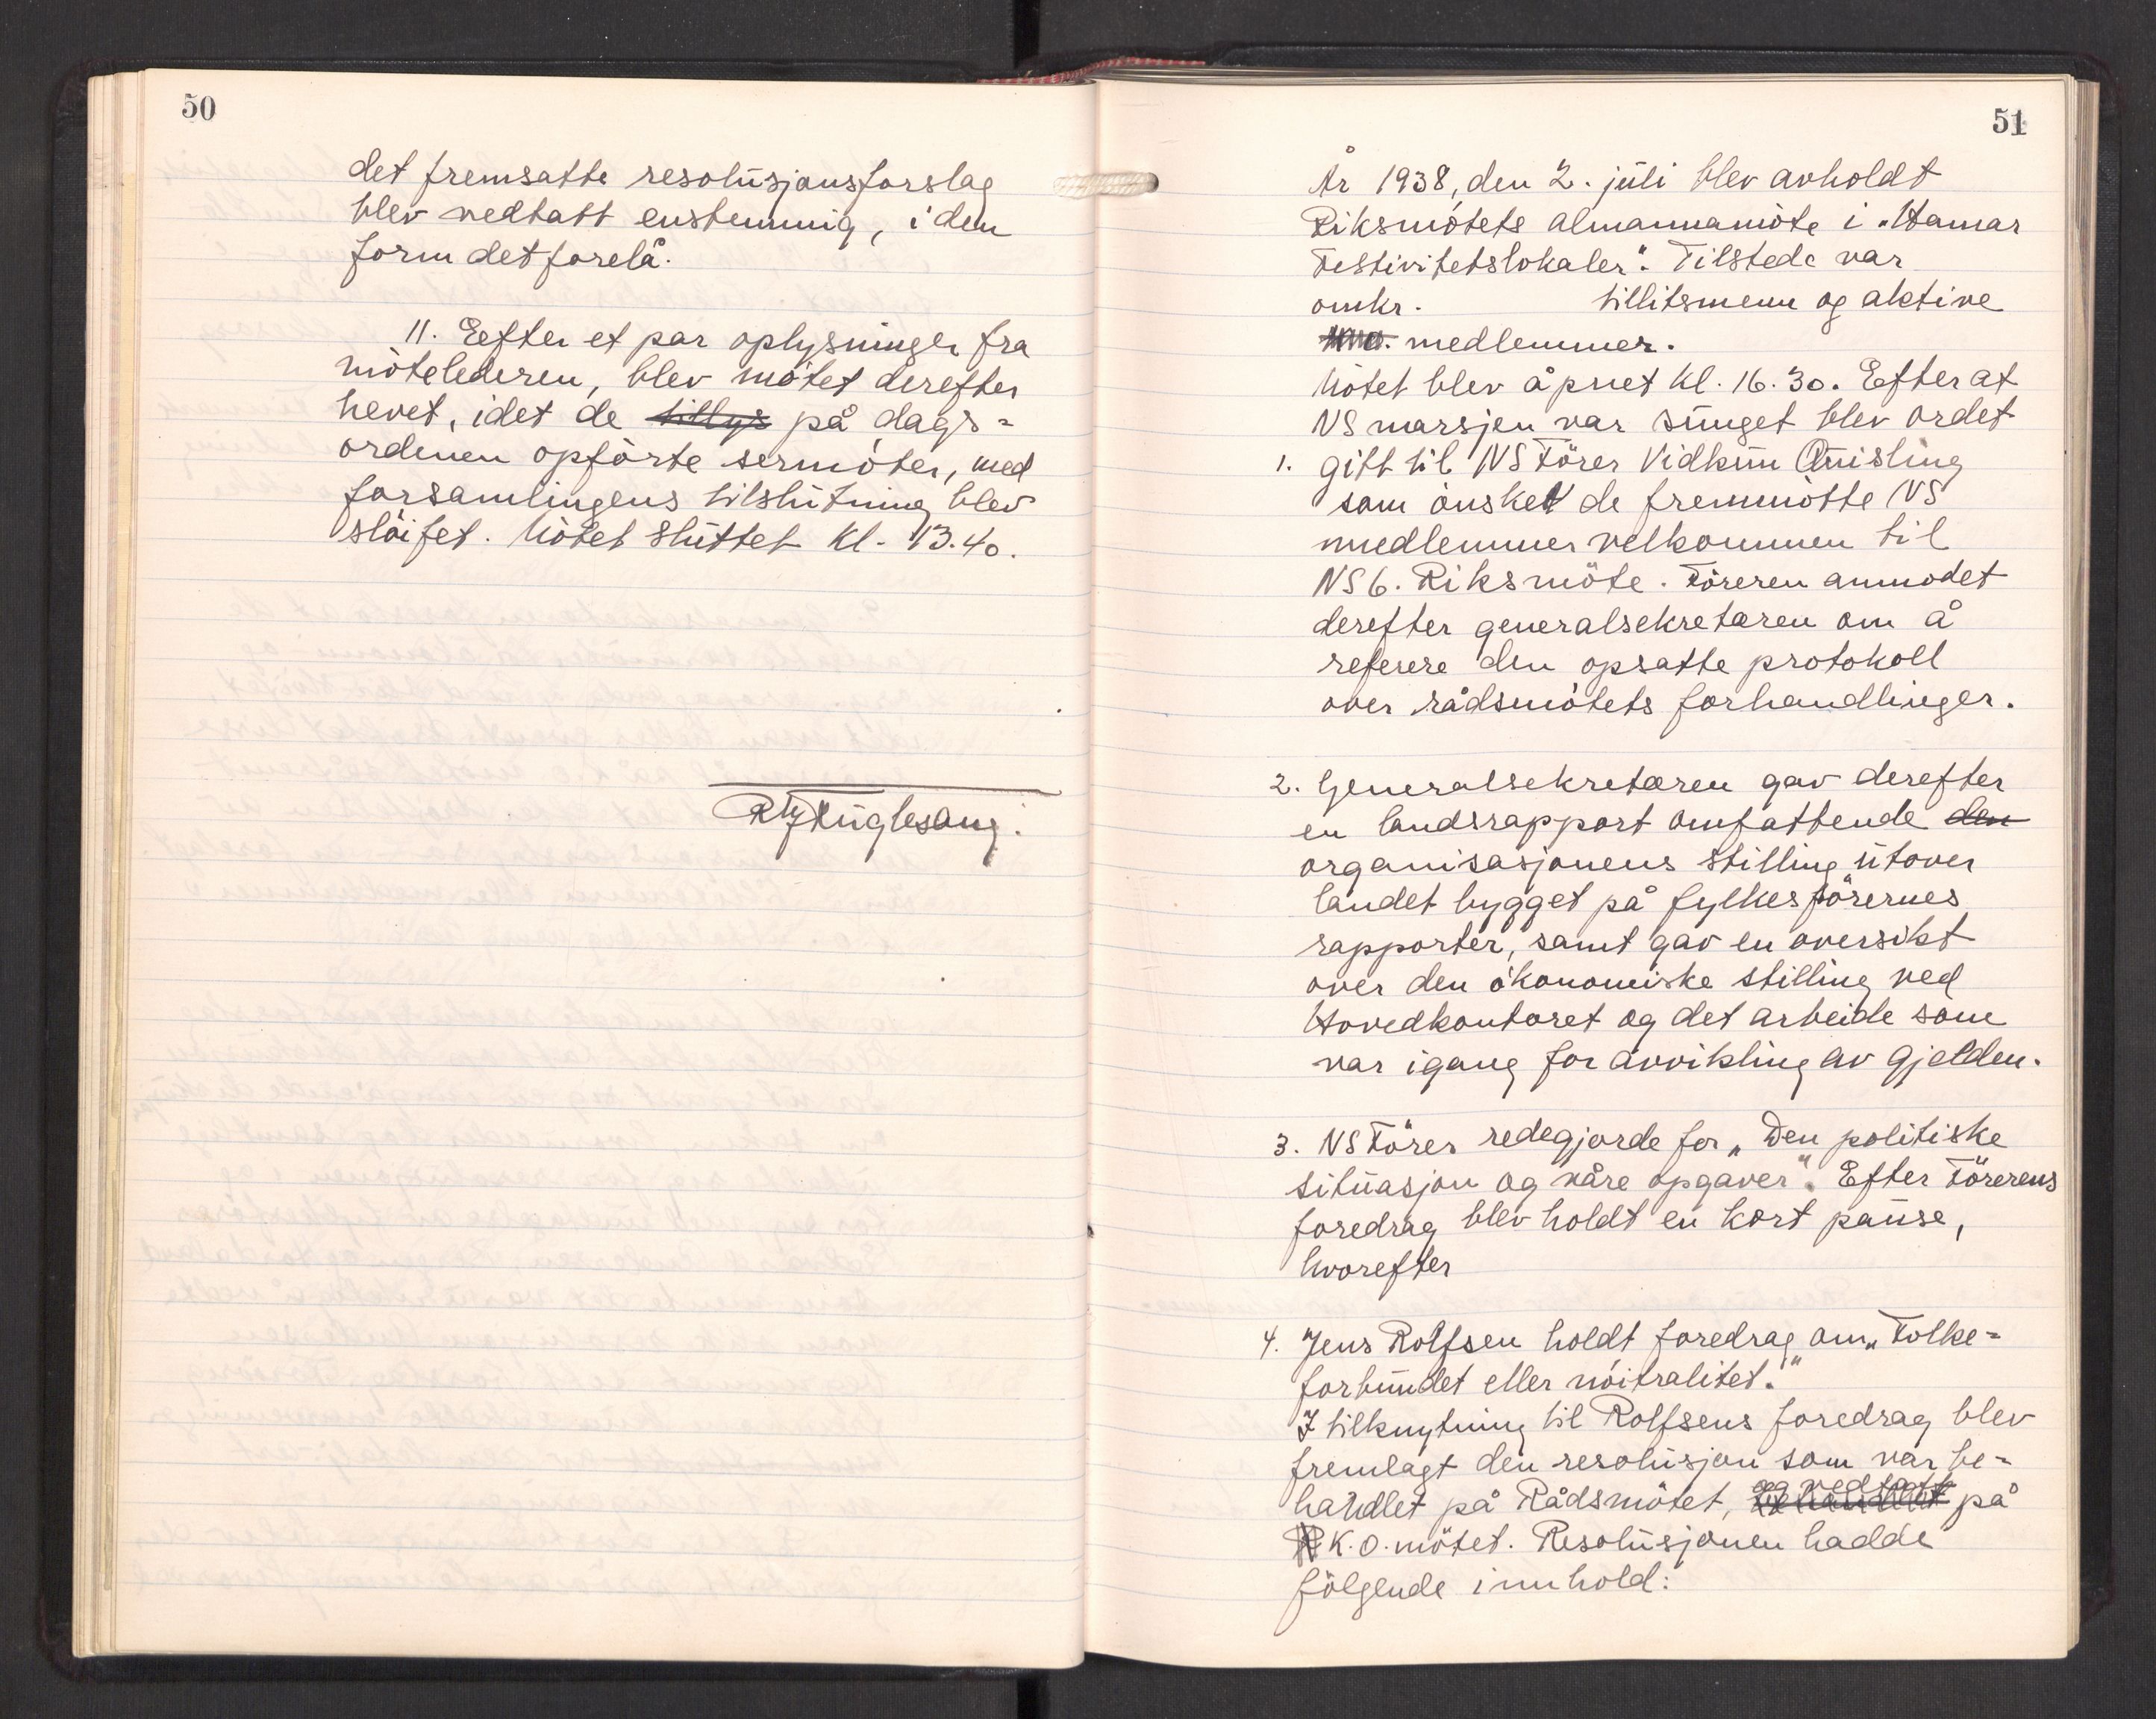 50
det fremsatte resolusjonsforslag
blev vedtatt enstemmig, i den
form det forelå.
11. Eefter et par oplysninger fra
mötelederen, blev mötet derefter
hevet, idet de tillys på dags=
ordenen opförte sermöter, med
forsamlingens tilslutning blev
slöifet. Mötet sluttet kl. 13.40.
51
År 1938, den 2. juli blev avholdt
Riksmötets almannamöte i „Hamar
Festivitetslokaler". Tilstede var
omkr. tillitsmenn og aktive
medlemmer.
Mötet blev åpnet kl. 16.30. Efter at
NS marsjen var sunget blev ordet
1. gitt til NS Förer Vidkun Quisling
som önsket de fremmötte NS
medlemmer velkommen til
NS 6. Riksmöte. Föreren anmodet
derefter generalsekretæren om å
referere den opsatte protokoll
over rådsmötets forhandlinger.
2. Generalsekretæren gav derefter
en landsrapport omfattende den
organisasjonens stilling utover
landet bygget på fylkesförernes
rapporter, samt gav en oversikt
over den ökonomiske stilling ved
Hovedkontoret og det arbeide som
var igang for avvikling av gjelden.
3. NS Förer redegjorde for „Den politiske
situasjon og våre opgaver". Efter Förerens
foredrag blev holdt en kort pause,
hvorefter
4. Jens Rolfsen holdt foredrag om „Folke=
forbundet eller nöitralitet."
I tilknytning til Rolfsens foredrag blev
fremlagt den resolusjon som var be=
handlet på Rådsmötet, og vedtatt på
K.O. mötet. Resolusjonen hadde
fölgende innhold: